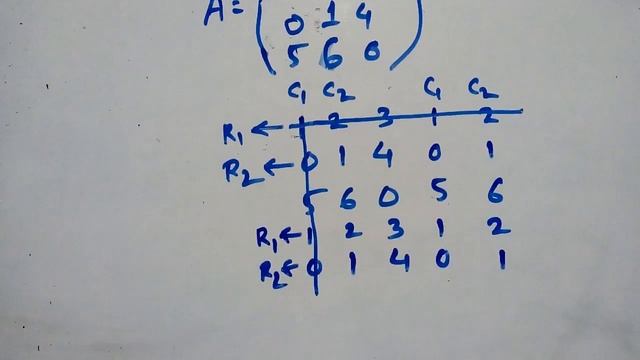 A=
0 1 4
5 6 0
C1 C2 C1 C2
R1 ← 1 2 3 1 2
R2 ← 0 1 4 0 1
5 6 0 5 6
R1 ← 1 2 3 1 2
R2 ← 0 1 4 0 1